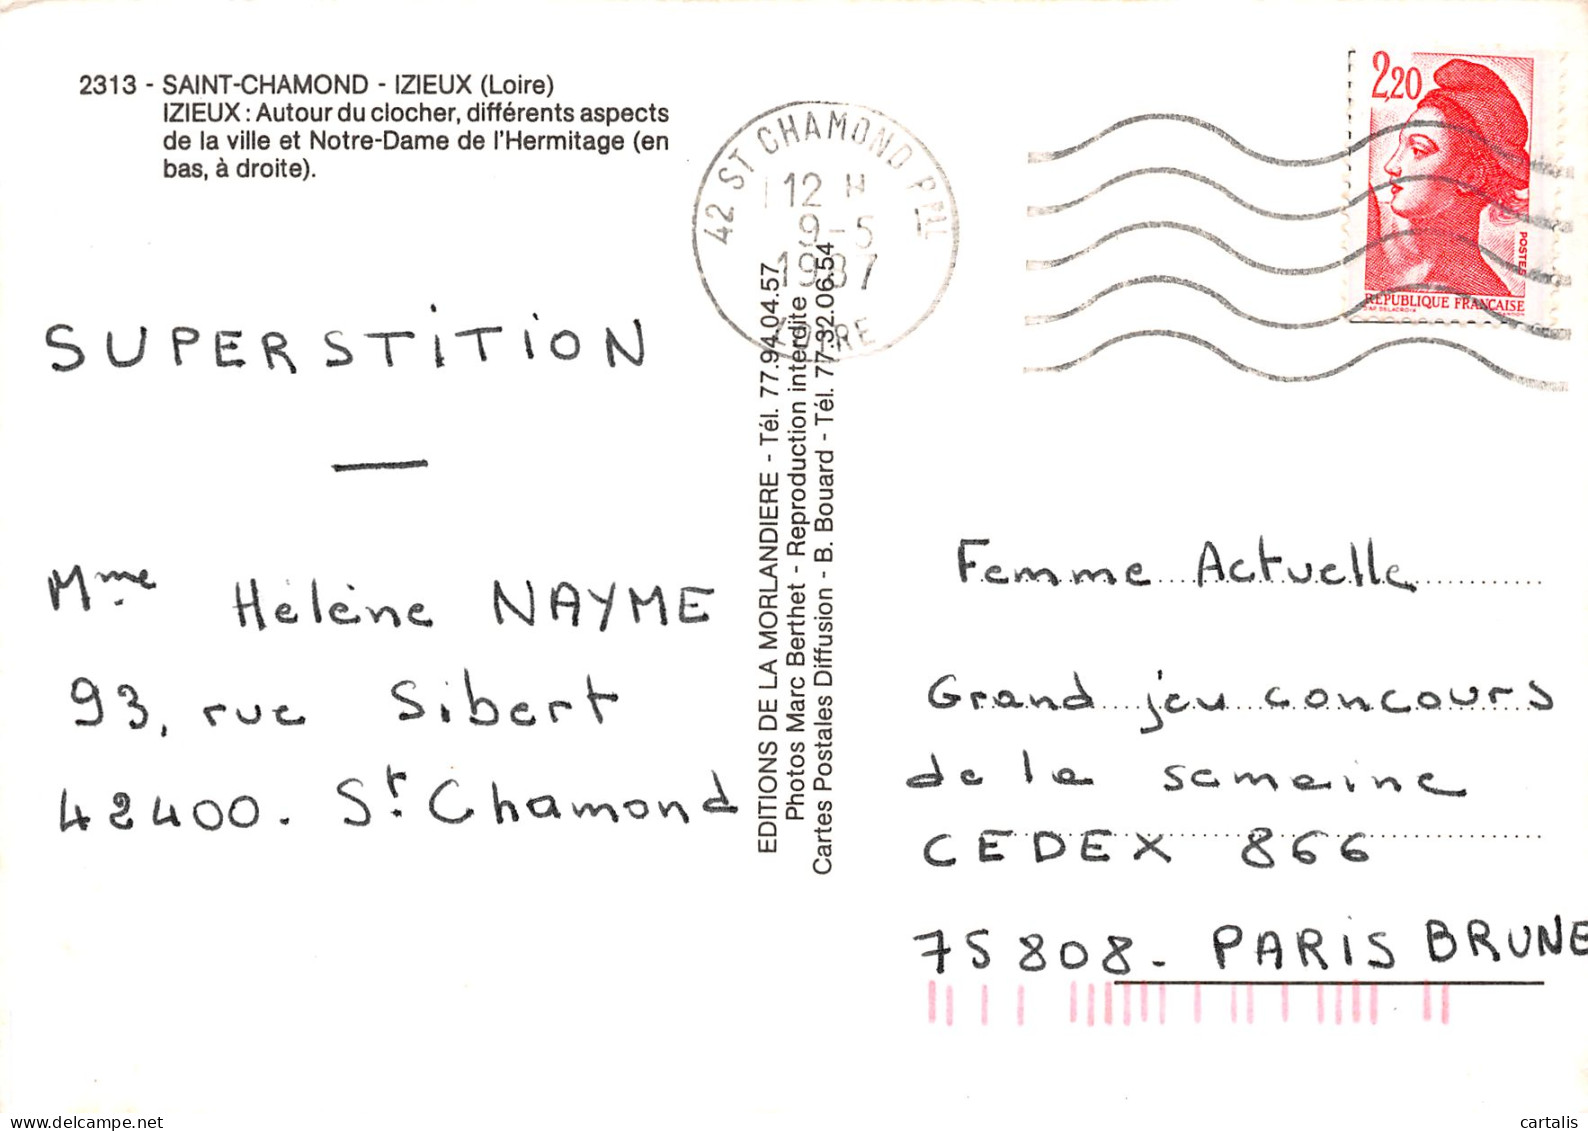 2313 - SAINT-CHAMOND - IZIEUX (Loire)
IZIEUX : Autour du clocher, différents aspects
de la ville et Notre-Dame de l'Hermitage (en
bas, à droite).
42 ST CHAMOND PPAL
12 H
9-5
1987
LOIRE
2,20
POSTES
REPUBLIQUE FRANÇAISE
SUPERSTITION
Mme Hélène NAYME
93, rue Sibert
42400. St. Chamond
EDITIONS DE LA MORLANDIERE - Tél. 77.94.04.57
Photos Marc Berthet - Reproduction interdite
Cartes Postales Diffusion - B. Bouard - Tél. 77.32.06.54
Femme Actuelle
Grand jeu concours
de la semaine
CEDEX 866
75808 - PARIS BRUNE
cartalis
delcampe.net